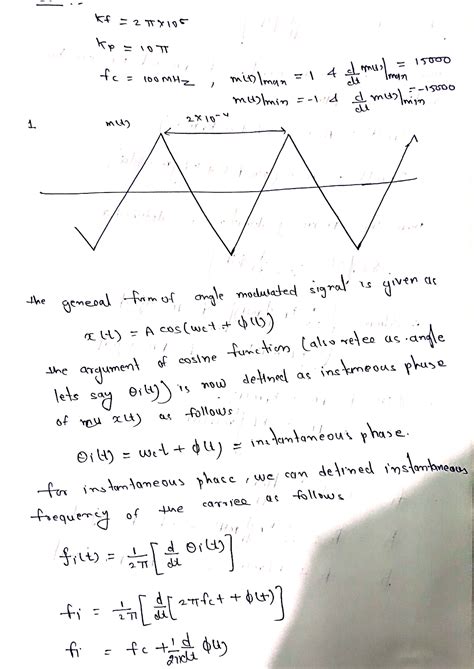 kf = 2π×10⁵
kp = 10π
fc = 100MHz , m(t)|max = 1 & d/dt m(t)|max = 15000
m(t)|min = -1 & d/dt m(t)|min = -15000
1 m(t) 2×10⁻⁴
the general form of angle modulated signal is given as
x(t) = A cos(ωct + φ(t))
the argument of cosine function (also refer as angle
lets say θi(t)) is now defined as instmeous phase
of mu x(t) as follows
θi(t) = ωct + φ(t) = instantaneous phase.
for instantaneous phase, we can defined instantaneous
frequency of the carrier as follows
fi(t) = 1/2π [d/dt θi(t)]
fi = 1/2π [d/dt [2πfct + φ(t)]
fi = fc + 1/2π d/dt φ(t)